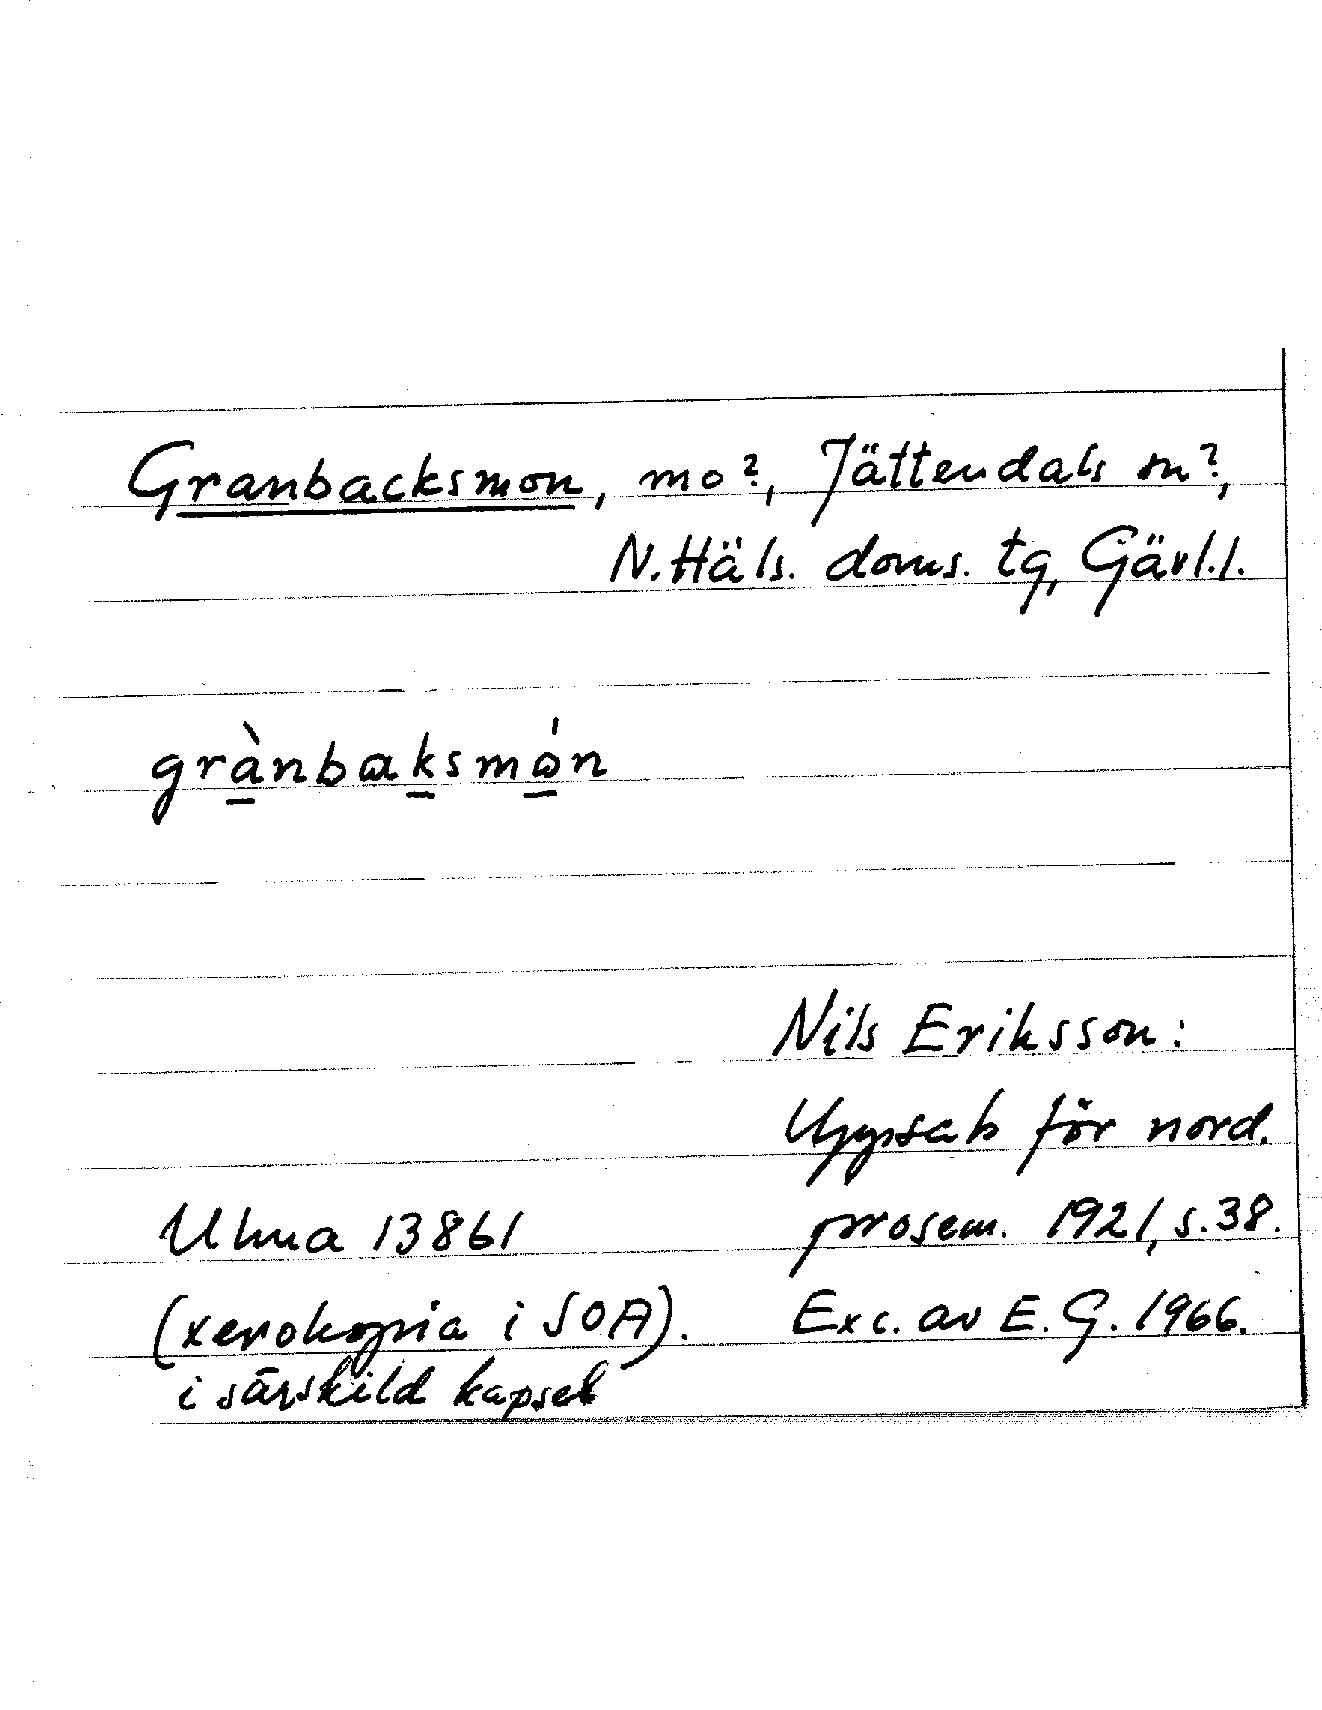 Granbacksmon, mo?, Jättendals sn?,
N.Häls. doms. tg, Gävl.l.
grànbaksmón
Nils Eriksson:
Uppsats för nord.
Ulma 13861 prosem. 1921, s.38.
(xerokopia i SOA). Exc. av E.G. 1966.
i särskild kapsel